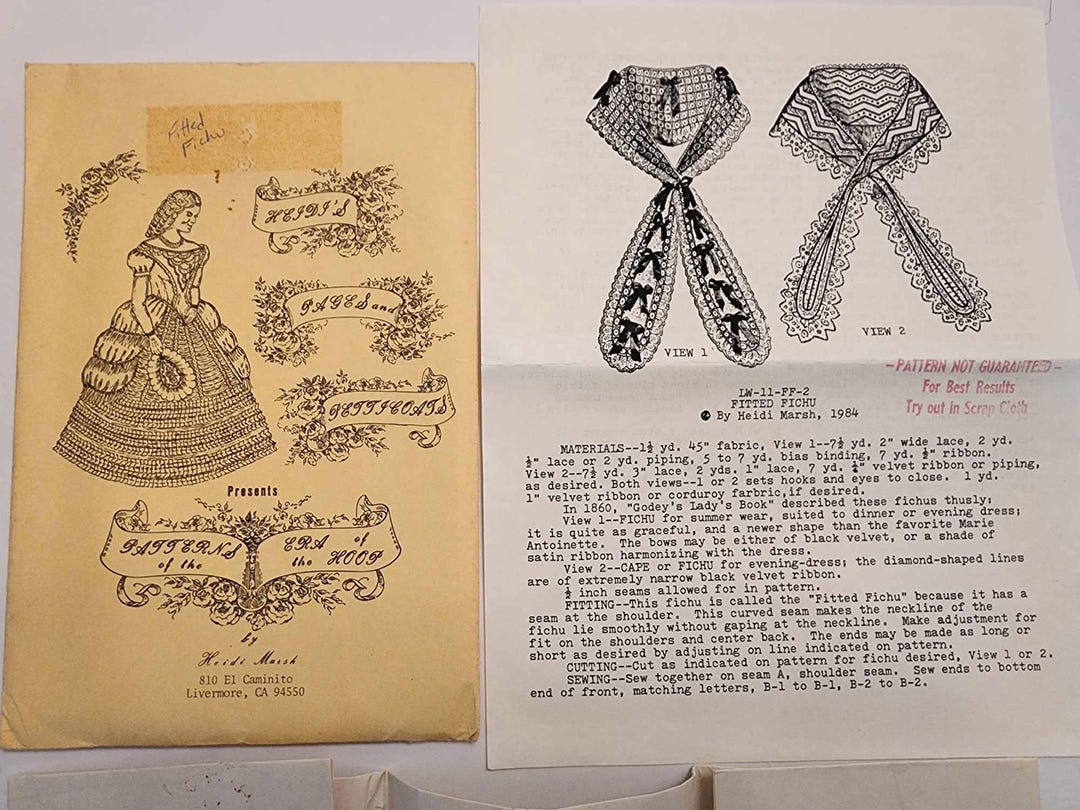 Fitted
Fichu
HEIDI'S
PAGES and
PETTICOATS
Presents
PATTERNS ERA of
of the the HOOP
by
Heidi Marsh
810 El Caminito
Livermore, CA 94550
VIEW 1
VIEW 2
-PATTERN NOT GUARANTEED-
For Best Results
Try out in Scrap Cloth
LW-11-FF-2
FITTED FICHU
By Heidi Marsh, 1984
MATERIALS--1½ yd. 45" fabric, View 1--7½ yd. 2" wide lace, 2 yd.
½" lace or 2 yd. piping, 5 to 7 yd. bias binding, 7 yd. ½" ribbon.
View 2--7½ yd. 3" lace, 2 yds. 1" lace, 7 yd. ¼" velvet ribbon or piping,
as desired. Both views--1 or 2 sets hooks and eyes to close. 1 yd.
1" velvet ribbon or corduroy farbric,if desired.
In 1860, "Godey's Lady's Book" described these fichus thusly;
View 1--FICHU for summer wear, suited to dinner or evening dress;
it is quite as graceful, and a newer shape than the favorite Marie
Antoinette. The bows may be either of black velvet, or a shade of
satin ribbon harmonizing with the dress.
View 2--CAPE or FICHU for evening-dress; the diamond-shaped lines
are of extremely narrow black velvet ribbon.
½ inch seams allowed for in pattern.
FITTING--This fichu is called the "Fitted Fichu" because it has a
seam at the shoulder. This curved seam makes the neckline of the
fichu lie smoothly without gaping at the neckline. Make adjustment for
fit on the shoulders and center back. The ends may be made as long or
short as desired by adjusting on line indicated on pattern.
CUTTING--Cut as indicated on pattern for fichu desired, View 1 or 2.
SEWING--Sew together on seam A, shoulder seam. Sew ends to bottom
end of front, matching letters, B-1 to B-1, B-2 to B-2.